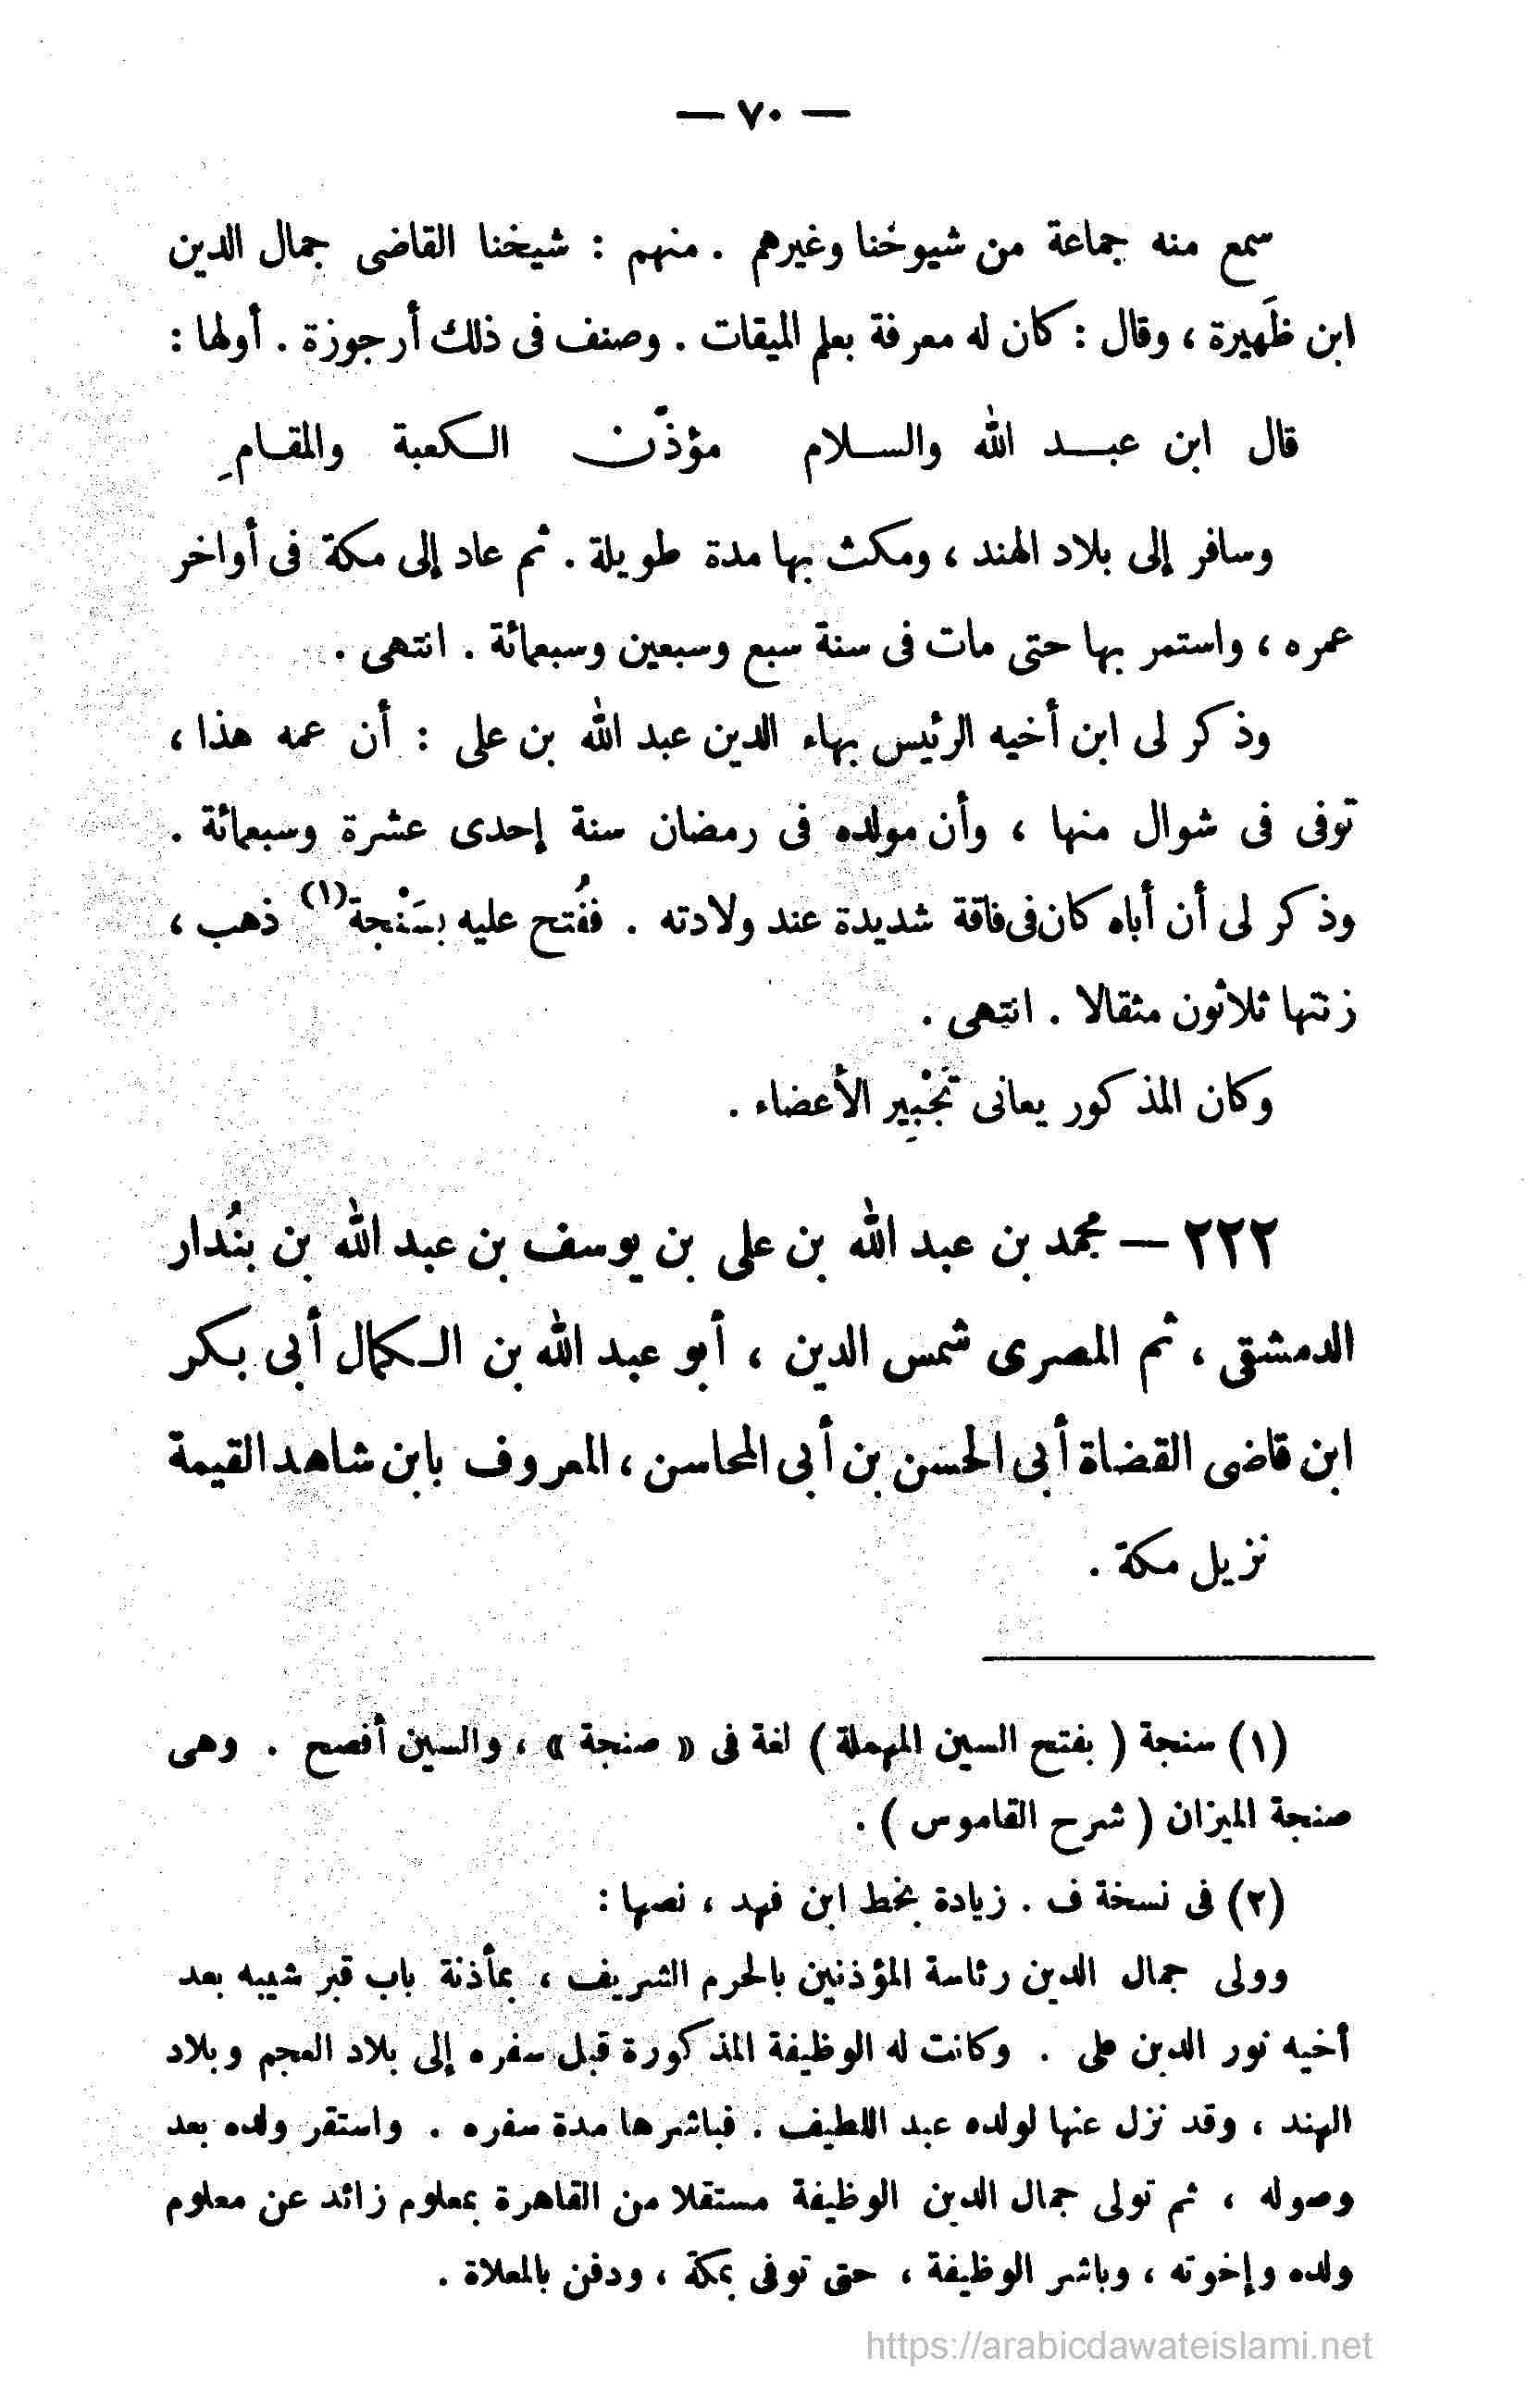 — ٧٠ —
سمع منه جماعة من شيوخنا وغيرهم . منهم : شيخنا القاضى جمال الدين
ابن ظَهيرة ، وقال : كان له معرفة بعلم الميقات . وصنف فى ذلك أرجوزة . أولها :
قال ابن عبد الله والسلام مؤذّن الكعبة والمقامِ
وسافر إلى بلاد الهند ، ومكث بها مدة طويلة . ثم عاد إلى مكة فى أواخر
عمره ، واستمر بها حتى مات فى سنة سبع وسبعين وسبعمائة . انتهى .
وذكر لى ابن أخيه الرئيس بهاء الدين عبد الله بن على : أن عمه هذا ،
توفى فى شوال منها ، وأن مولده فى رمضان سنة إحدى عشرة وسبعمائة .
وذكر لى أن أباه كان فى فاقة شديدة عند ولادته . ففُتح عليه بسَنْجة(١) ذهب ،
زنتها ثلاثون مثقالا . انتهى .
وكان المذكور يعانى تَجْبِير الأعضاء .
٢٢٢ — محمد بن عبد الله بن على بن يوسف بن عبد الله بن بنُدار
الدمشقى ، ثم المصرى شمس الدين ، أبو عبد الله بن الكمال أبى بكر
ابن قاضى القضاة أبى الحسن بن أبى المحاسن ، المعروف بابن شاهد القيمة
نزيل مكة .
(١) سنجة ( بفتح السين المهملة ) لغة فى « صنجة » ، والسين أفصح . وهى
صنجة الميزان ( شرح القاموس ) .
(٢) فى نسخة ف . زيادة بخط ابن فهد ، نصها :
وولى جمال الدين رئاسة المؤذنين بالحرم الشريف ، بمأذنة باب قبر شيبه بعد
أخيه نور الدين على . وكانت له الوظيفة المذكورة قبل سفره إلى بلاد العجم وبلاد
الهند ، وقد نزل عنها لولده عبد اللطيف . فباشرها مدة سفره . واستقر ولده بعد
وصوله ، ثم تولى جمال الدين الوظيفة مستقلا من القاهرة بمعلوم زائد عن معلوم
ولده وإخوته ، وباشر الوظيفة ، حتى توفى بمكة ، ودفن بالمعلاة .
https://arabicdawateislami.net